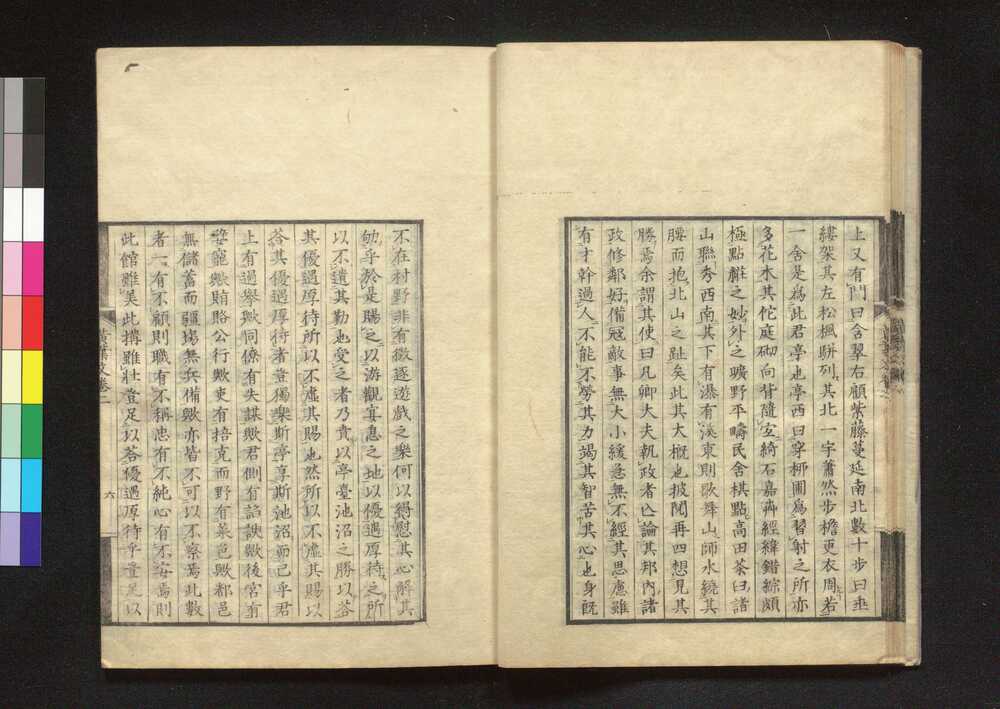 上又有門曰含翠右顧紫藤蔓延南北數十步曰垂
縷架其左松楓駢列其北一宇蕭然步檐更衣周若
一舍是為此君亭也亭西曰穿楊圃為習射之所亦
多花木其佗庭砌向背隨宜綺石嘉卉經緯錯綜頗
極點綴之妙外之曠野平疇民舍棋點高田茶臼諸
山聯秀西南其下有瀑有溪東則歌舞山師水繞其
腰而抱北山之趾矣此其大概也披閱再四想見其
勝焉余謂其使曰凡卿大夫執政者亡論其邦內諸
政修鄰好備冠敵事無大小緩急無不經其思慮雖
有才幹過人不能不勞其力竭其智苦其心也身既
不在村野非有徵逐遊戲之樂何以得慰其心解其
劬乎於是賜之以游觀宴息之地以優遇厚待之所
以不遺其勤也受之者乃貴以亭臺池沼之勝以荅
其優遇厚待所以不虛其賜也然所以不虛其賜以
荅其優遇厚待者豈獨樂斯亭享斯池沼而已乎君
上有過舉歟同僚有失謀歟君側有諂諛歟後宮有
嬖寵歟賄賂公行歟吏有掊克而野有菜色歟都邑
無儲蓄而疆場無兵備歟亦皆不可以不察焉此數
者一有不顧則職有不稱忠有不純心有不安焉則
此館雖美此搆雖壯豈足以荅優遇厚待乎豈足以
黃葉文卷二
六